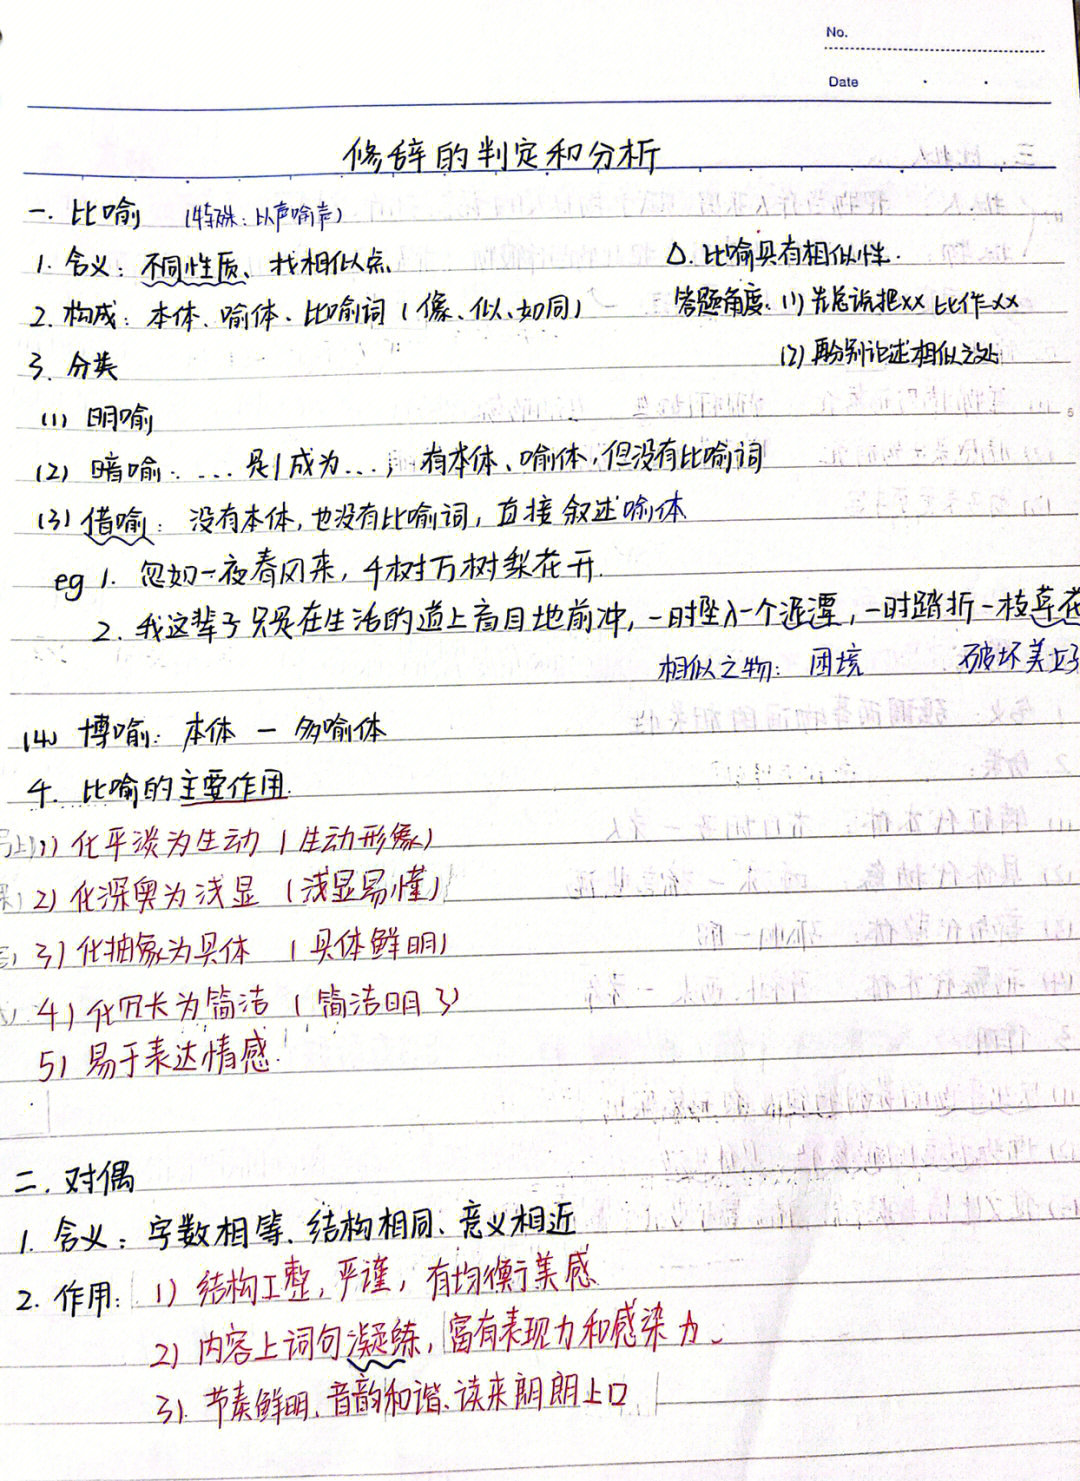 No.
Date
修辞的判定和分析
一. 比喻 (特殊:以声喻声)
1. 含义:不同性质、找相似点 △. 比喻具有相似性.
2. 构成:本体、喻体、比喻词(像、似、如同) 答题角度. (1) 先总说把xx比作xx
3. 分类 (2) 再分别论述相似之处
(1) 明喻
(2) 暗喻:.... 是/成为...; 有本体、喻体,但没有比喻词
(3) 借喻:没有本体,也没有比喻词,直接叙述喻体
eg 1. 忽如一夜春风来,千树万树梨花开.
2. 我这辈子只是在生活的道上盲目地前冲,一时坠入一个泥潭,一时踏折一枝草花
相似之物:困境 破坏美好
(4) 博喻:本体 — 多喻体
4. 比喻的主要作用.
1) 化平淡为生动 (生动形象)
2) 化深奥为浅显 (浅显易懂)
3) 化抽象为具体 (具体鲜明)
4) 化冗长为简洁 (简洁明了)
5) 易于表达情感.
二. 对偶
1. 含义:字数相等、结构相同、意义相近
2. 作用: 1) 结构工整,严谨,有均衡美感
2) 内容上词句凝练,富有表现力和感染力、
3). 节奏鲜明、音韵和谐、读来朗朗上口